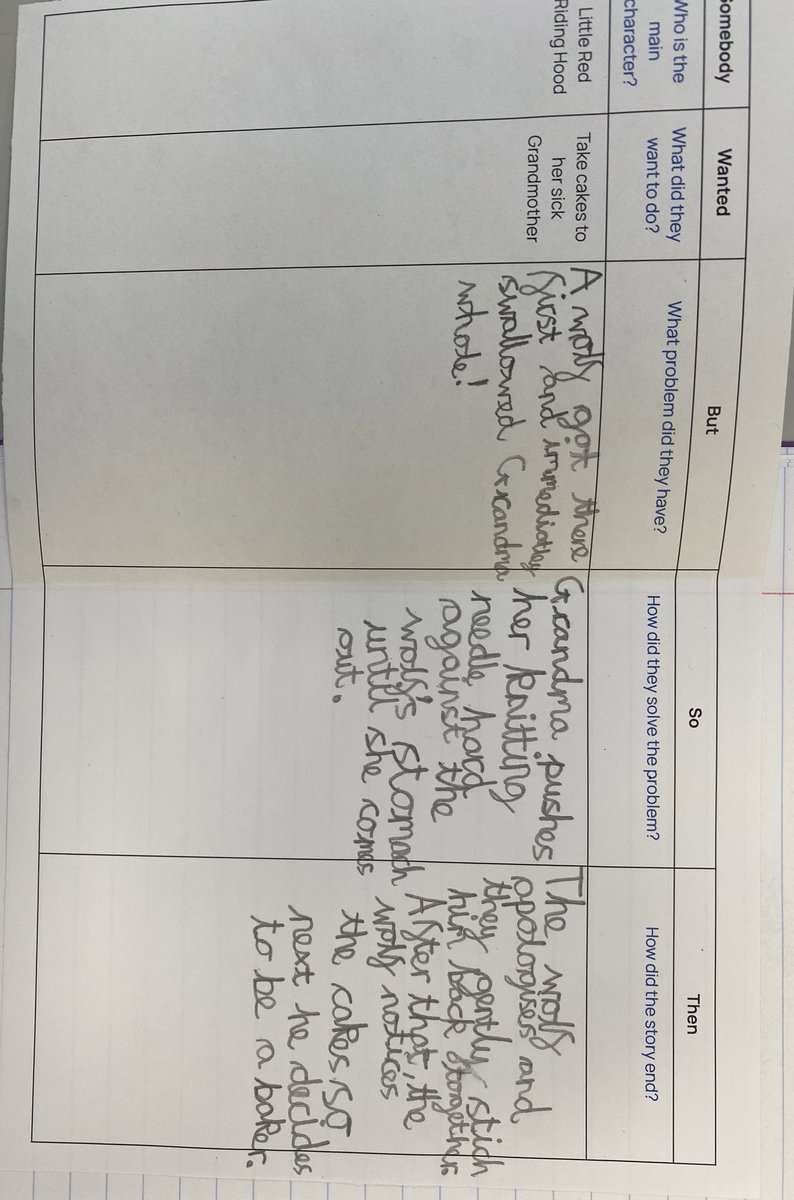 Somebody
Wanted
But
So
Then
Who is the
main
character?
What did they
want to do?
What problem did they have?
How did they solve the problem?
How did the story end?
Little Red
Riding Hood
Take cakes to
her sick
Grandmother
A wolf got there
first and immediatley
swallowed Grandma
whole!
Grandma pushes
her knitting
needle hard
against the
wolf's stomach
until she comes
out.
The wolf
apologises and
they gently stich
him back together.
After that, the
wolf notices
the cakes so
next he decides
to be a baker.